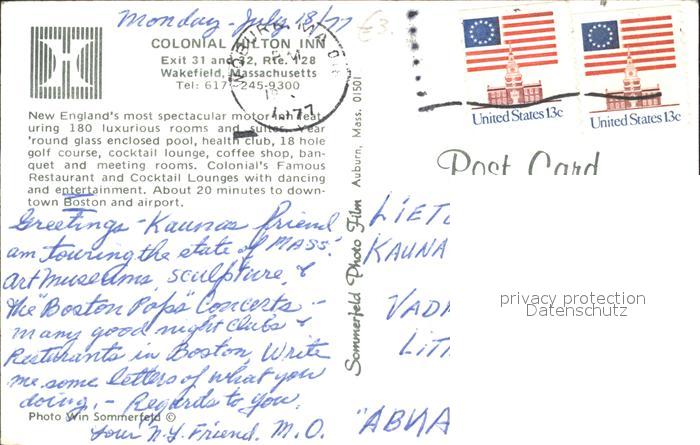 Monday - July 18/77
COLONIAL HILTON INN
Exit 31 and 32, Rte. 128
Wakefield, Massachusetts
Tel: 617-245-9300
New England's most spectacular motor inn feat-
uring 180 luxurious rooms and suites. Year
'round glass enclosed pool, health club, 18 hole
golf course, cocktail lounge, coffee shop, ban-
quet and meeting rooms. Colonial's Famous
Restaurant and Cocktail Lounges with dancing
and entertainment. About 20 minutes to down-
town Boston and airport.
Greetings - Kaunas friend
am touring the state of MASS.
art museums, sculpture, &
the "Boston Pops" Concerts -
many good night clubs &
Resturants in Boston, Write
me some letters of what you
doing. - Regards to you,
Your N.Y. Friend, M.O.
Photo Win Sommerfeld ©
Sommerfeld Photo Film Auburn, Mass. 01501
PM
1977
United States 13c
United States 13c
Post Card
LIET
KAUNA
VAD
LIT
"ABNA
privacy protection
Datenschutz